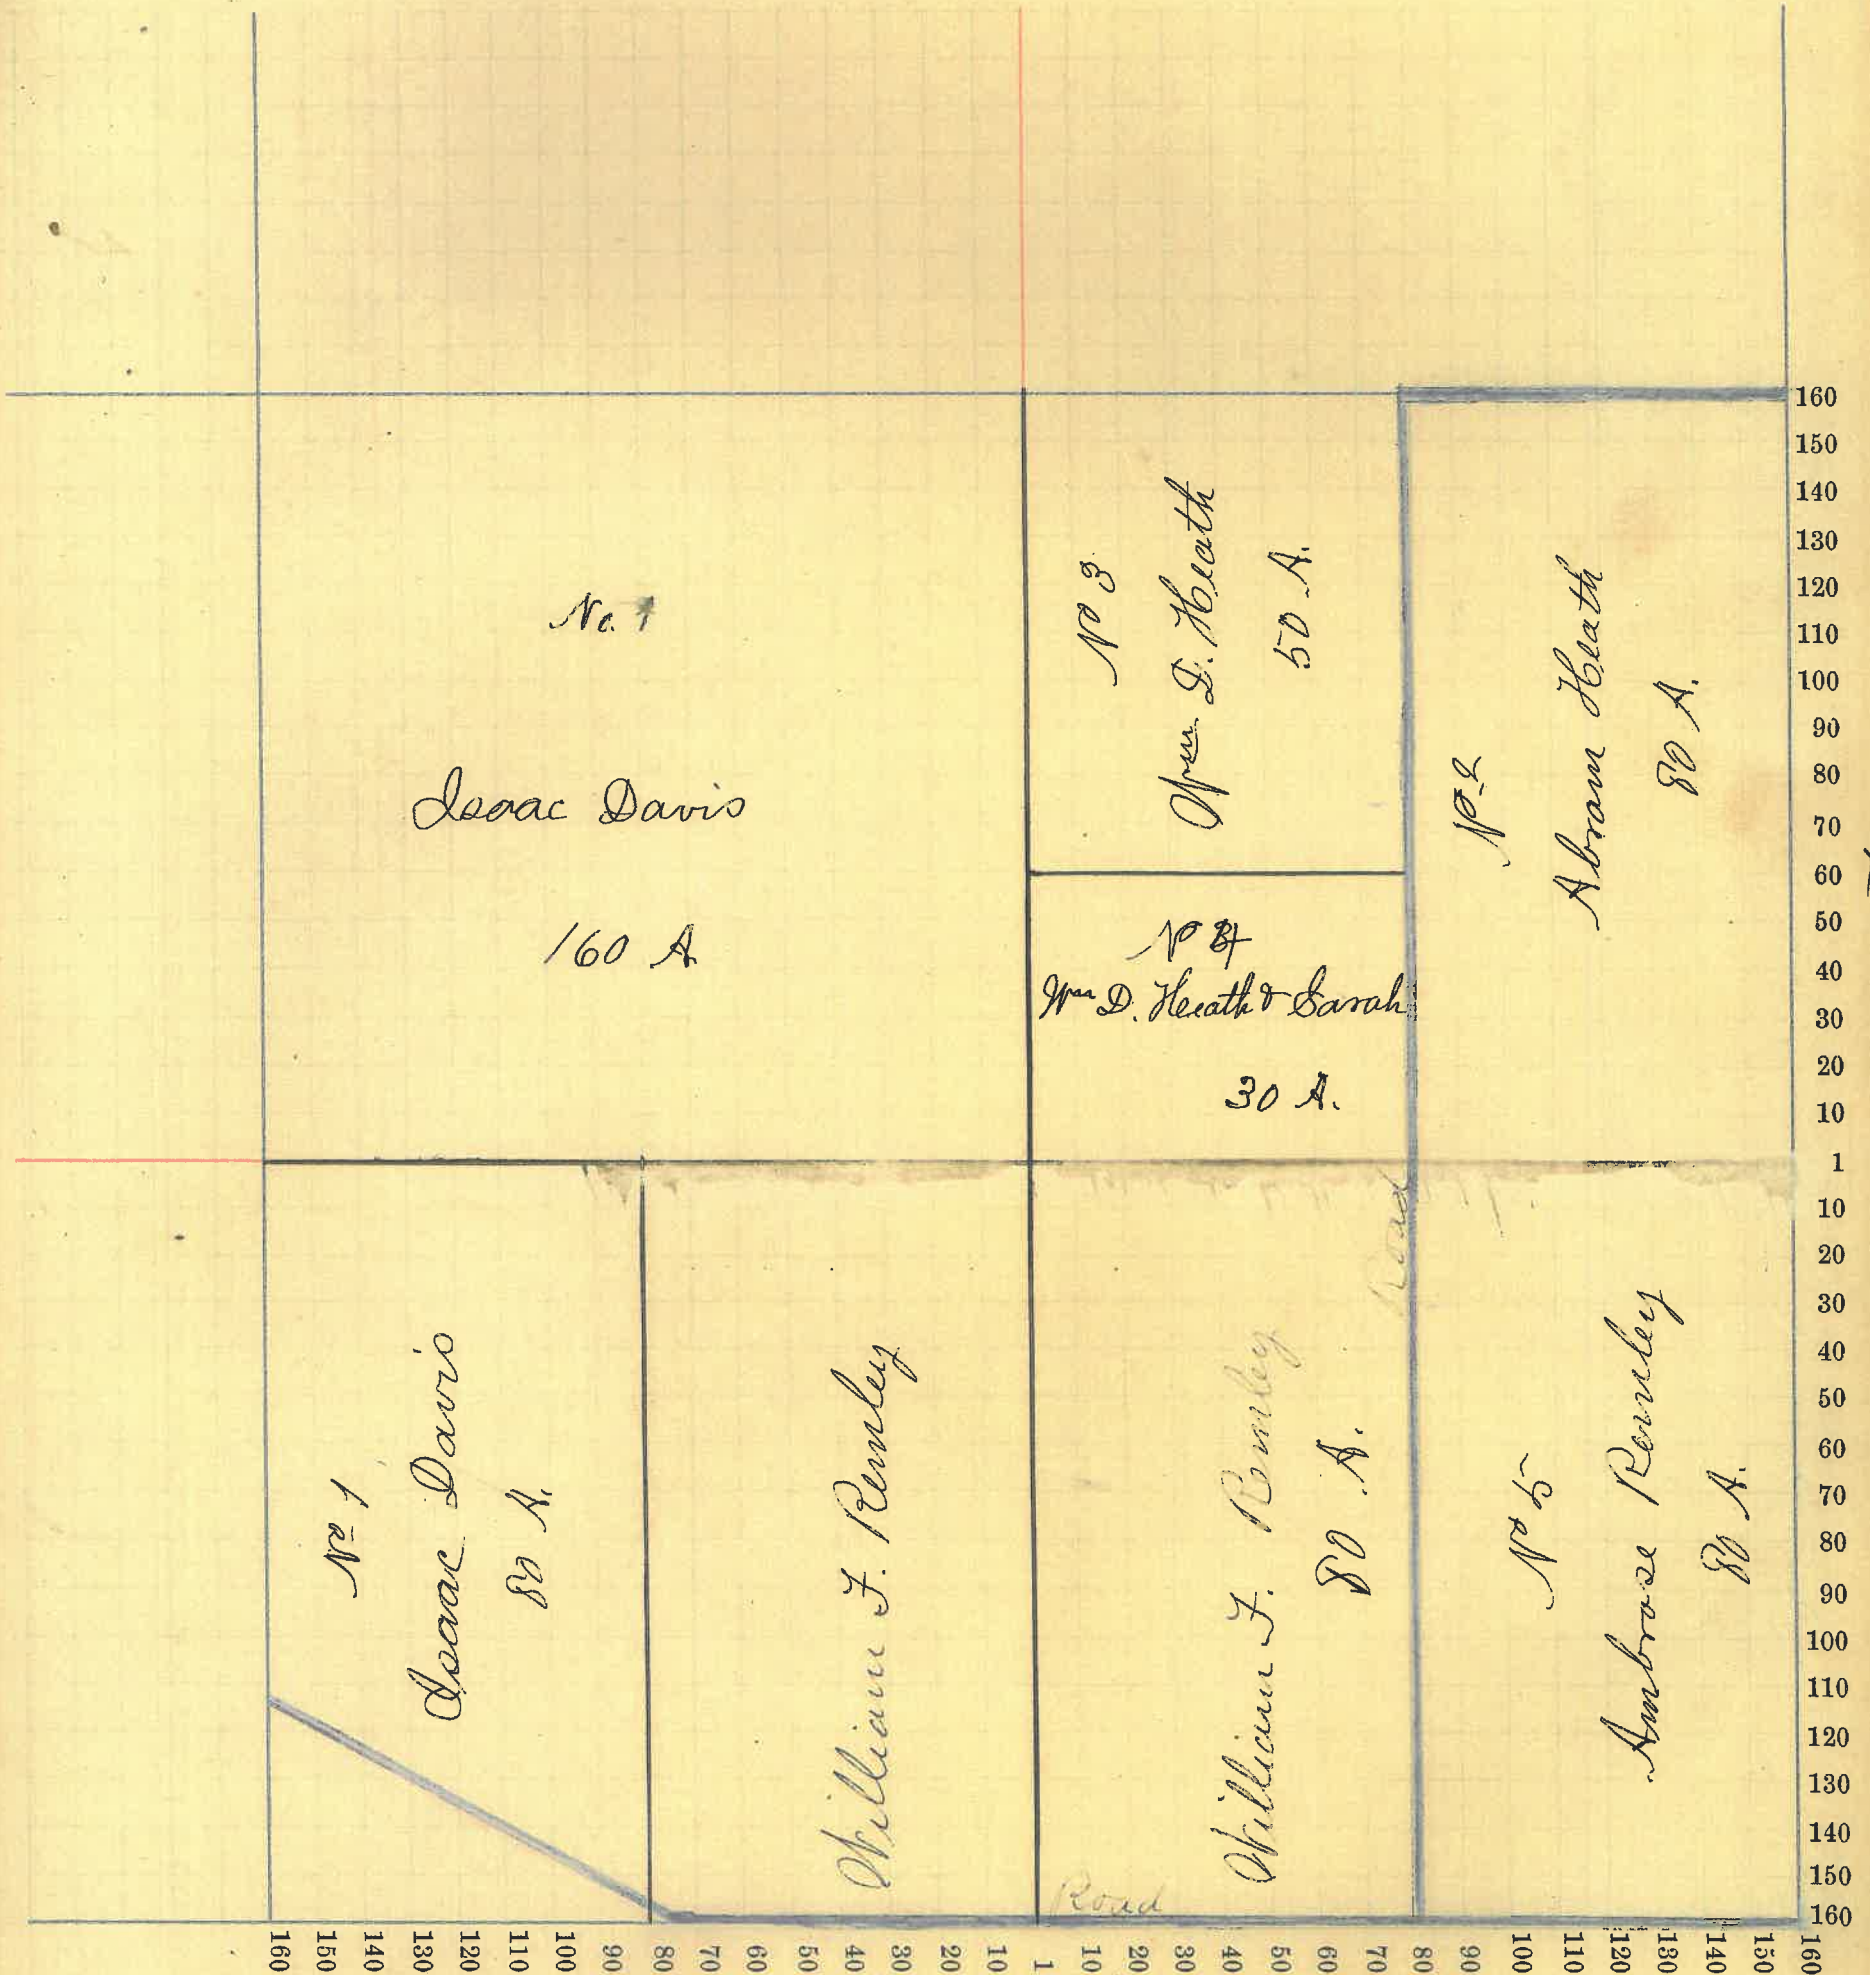 No. 1
Isaac Davis
160 A.
No 3
Wm D. Heath
50 A.
No 4
Wm D. Heath & Sarah
30 A.
No 2
Abram Heath
80 A.
No 1
Isaac Davis
80 A.
William F. Remley
William F. Remley
80 A.
Road
No 5
Ambrose Remley
80 A.
Road
160
150
140
130
120
110
100
90
80
70
60
50
40
30
20
10
1
10
20
30
40
50
60
70
80
90
100
110
120
130
140
150
160
160 150 140 130 120 110 100 90 80 70 60 50 40 30 20 10 1 10 20 30 40 50 60 70 80 90 100 110 120 130 140 150 160